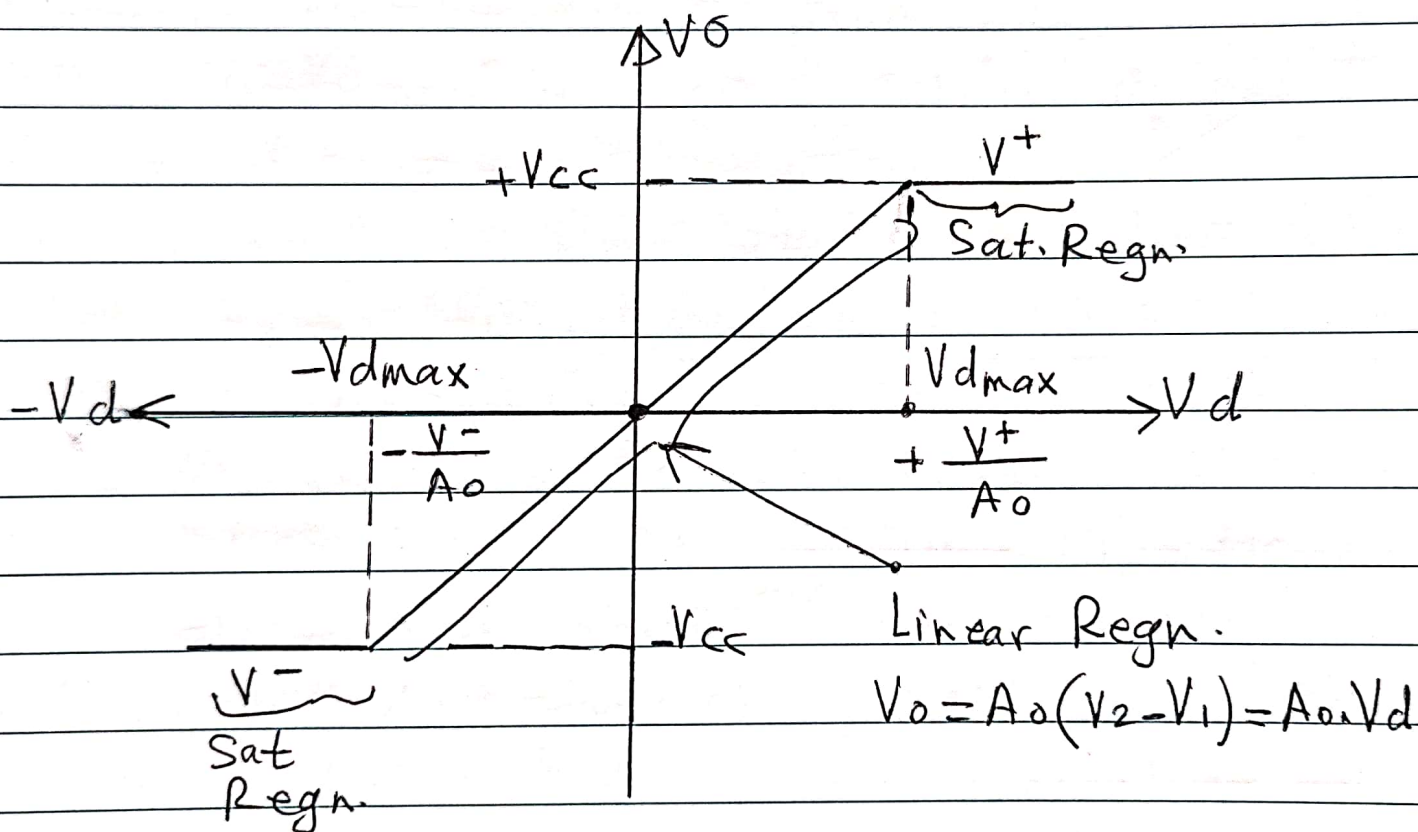 Vo
+Vcc
V+
Sat. Regn.
-Vdmax
Vdmax
-Vd
Vd
- V-
Ao
+ V+
Ao
-Vcc
Linear Regn.
V-
Vo = Ao(V2-V1) = Ao.Vd
Sat
Regn.